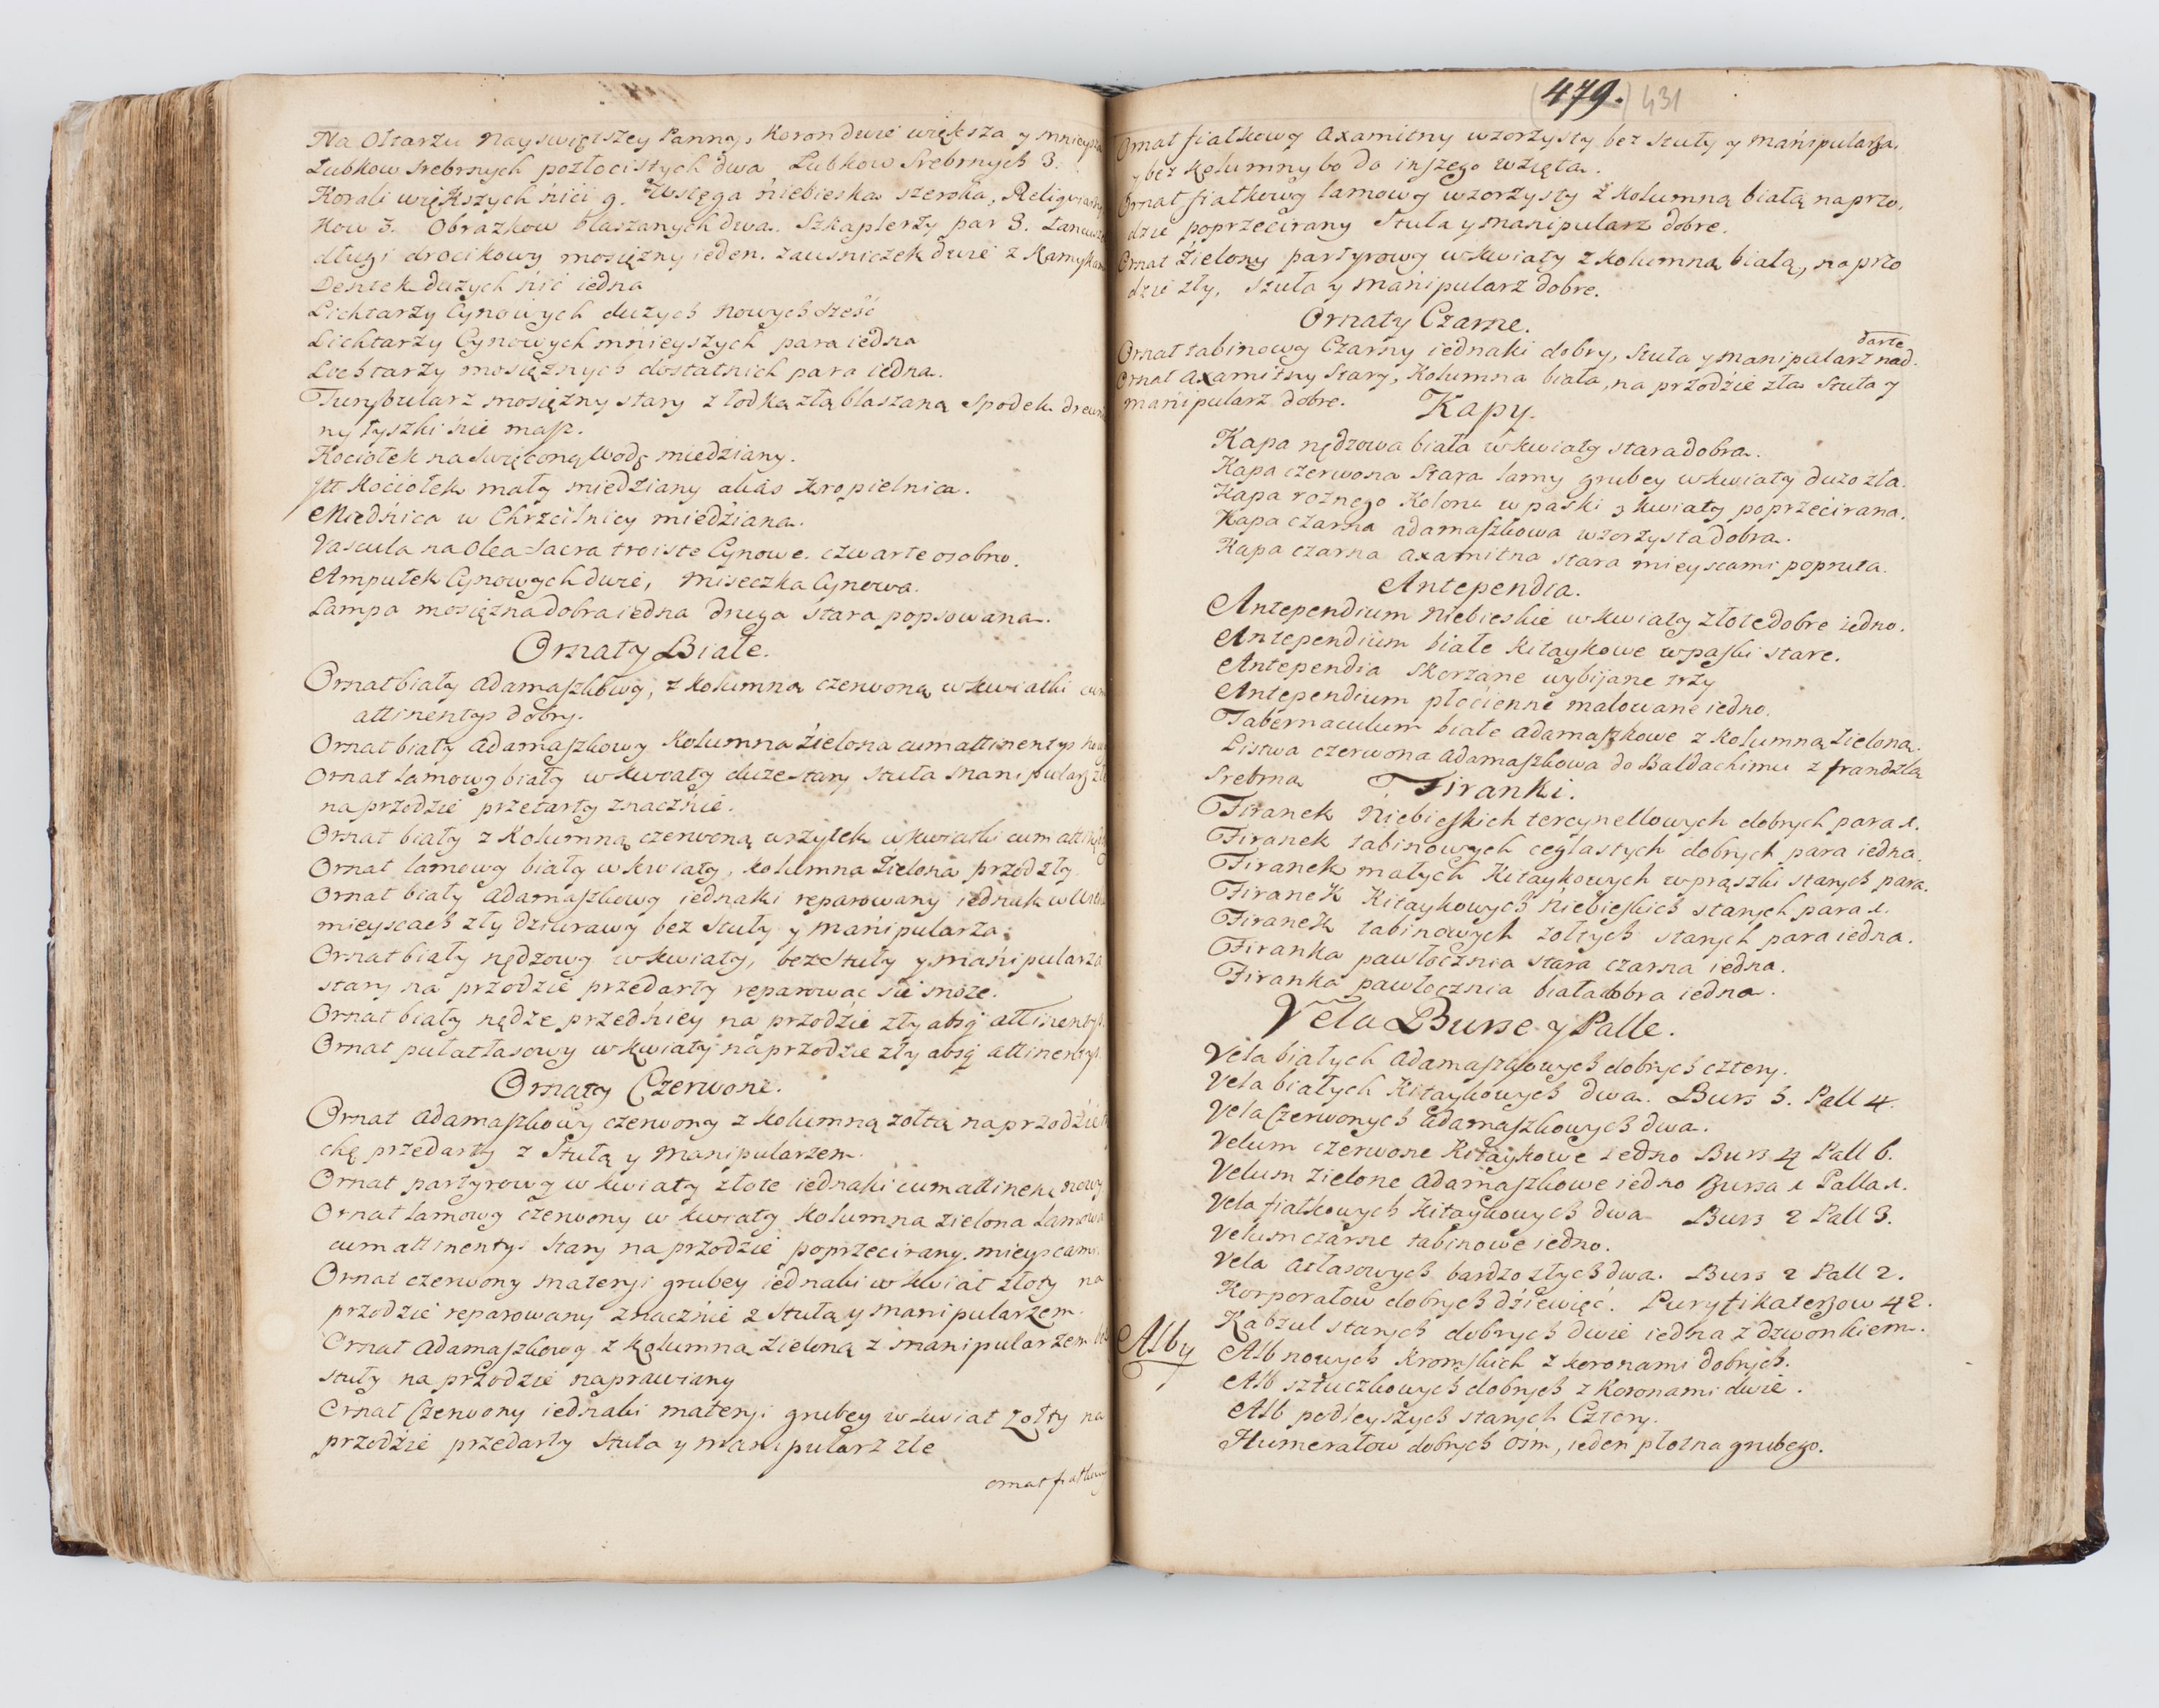 Na Ołtarzu Nayświętszey Panny, Koron dwie większa y mnieysza
Łubkow srebrnych pozłocistych dwa Łubkow Srebrnych 3.
Korali większych nici 9. Wstęga niebieska szeroka, Religwiarzy
kow 3. Obrazkow blaszanych dwa. Szkaplerzy par 3. Łancuszek
długi drocikowy mosiężny ieden. Zausniczek dwie z Kamykami
Dentek dużych nić iedna
Lichtarzy Cynowych dużych nowych sześć
Lichtarzy Cynowych mnieyszych para iedna
Lichtarzy mosiężnych dostatnich para iedna.
Turybularz mosiężny stary z łodką złą blaszaną Spodek drewnia
ny łyszki nie masz.
Kociołek na Swięconą Wodę miedziany.
Kociołek mały miedziany alias Kropielnica.
Miednica w Chrzcilnicy miedziana.
Vascula na Olea Sacra troiste Cynowe. czwarte osobno.
Ampułek Cynowych dwie, miseczka Cynowa.
Lampa mosiężna dobra iedna druga stara popsowana.
Ornaty Białe.
Ornat biały Adamaszkowy, z kolumną czerwoną w kwiatki cum
attinentys dobry.
Ornat biały Adamaszkowy Kolumna Zielona cum attinentys nowy
Ornat Lamowy biały w kwiaty duże stary stuła manipularz złe
na przodzie przetarty znacznie.
Ornat biały z Kolumną czerwoną wszytek w kwiatki cum attinentys
Ornat lamowy biały w kwiaty, kolumna Zielona przod zły
Ornat biały Adamaszkowy iednaki reparowany iednak w
mieyscach zły dziurawy bez Stuły y manipularza.
Ornat biały nędzowy w kwiaty, bez Stuły y manipularza
stary na przodzie przedarty reparować się może.
Ornat biały nędze przedniey na przodzie zły absq attinentys.
Ornat pułatłasowy w kwiaty na przodzie zły absq attinentys.
Ornaty Czerwone.
Ornat Adamaszkowy czerwony z kolumną zołtą na przodzie
chę przedarty z Stułą y Manipularzem.
Ornat partyrowy w kwiaty złote iednaki cum attinen: nowy
Ornat Lamowy czerwony w kwiaty kolumna zielona Lamowa
cum attinentys Stary na przodzie poprzecirany mieyscami.
Ornat czerwony materyi grubey iednaki w kwiat złoty na
przodzie reparowany znacznie z Stułą y manipularzem.
Ornat Adamaszkowy z kolumną zieloną z manipularzem bez
stuły na przodzie naprawiany
Ornat Czerwony iednaki materyi grubey w kwiat Zołty na
przodzie przedarty Stuła y manipularz złe
ornat fiałkowy
479. 431
Ornat fiałkowy Axamitny wzorzysty bez Stuły y manipularza,
y bez kolumny bo do inszego wzięta.
Ornat fiałkowy lamowy wzorzysty z kolumną białą na przo,
dzie poprzecirany Stuła y manipularz dobre.
Ornat Zielony partyrowy w kwiaty z kolumną białą, na przo
dzie zły, stuła y manipularz dobre.
Ornaty Czarne.
Ornat tabinowy Czarny iednaki dobry, Stuła y manipularz nad.
darte
Ornat Axamitny Stary, Kolumna biała, na przodzie zła Stuła y
manipularz dobre.
Kapy.
Kapa nędzowa biała w kwiaty stara dobra.
Kapa czerwona Stara lamy grubey w kwiaty dużo zła.
Kapa rożnego Koloru w paski y kwiaty poprzecirana.
Kapa czarna adamaszkowa wzorzysta dobra.
Kapa czarna axamitna stara mieyscami popruta.
Antependia.
Antependium Niebieskie w kwiaty złote dobre iedno.
Antependium białe kitaykowe w paski stare.
Antependia skorzane wybijane trzy
Antependium płocienne malowane iedno.
Tabernaculum białe adamaszkowe z kolumną Zieloną.
Listwa czerwona adamaszkowa do Baldachimu z frandzlą
Srebrną
Firanki.
Firanek Niebieskich tercynellowych dobrych para 1.
Firanek tabinowych ceglastych dobrych para iedna.
Firanek małych Kitaykowych w prąszki starych para.
Firanek Kitaykowych Niebieskich starych para 1.
Firanek tabinowych zołtych starych para iedna.
Firanka pawłocznia stara czarna iedna.
Firanka pawłocznia biała dobra iedna.
Vela Bursse y Palle.
Vela białych adamaszkowych dobrych cztery.
Vela białych Kitaykowych dwa. Burs 3. Pall 4.
Vela Czerwonych adamaszkowych dwa.
Velum czerwone Kitaykowe iedno Burs 4 Pall 6.
Velum Zielone Adamaszkowe iedno Bursa 1 Palla 1.
Vela fiałkowych kitaykowych dwa Burs 2 Pall 3.
Velum czarne tabinowe iedno.
Vela Atłasowych bardzo złych dwa. Burs 2 Pall 2.
Korporałow dobrych dziewięć. Puryfikaterzow 42.
Kabzul starych dobrych dwie iedna z dzwonkiem.
Alby
Alb nowych Kromskich z koronami dobrych.
Alb sztuczkowych dobrych z Koronami dwie.
Alb podleyszych starych Cztery.
Humerałow dobrych Ośm, ieden płotna grubego.